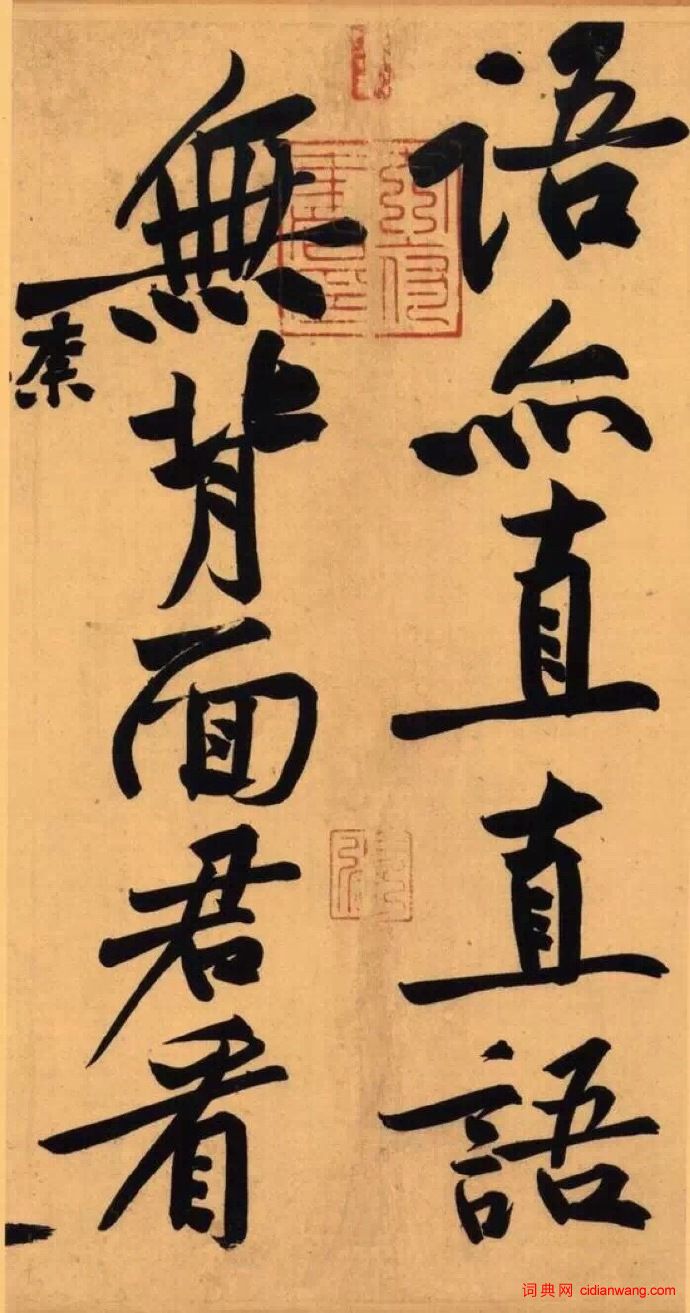 语亦直直語
無背面君看
词典网 cidianwang.com